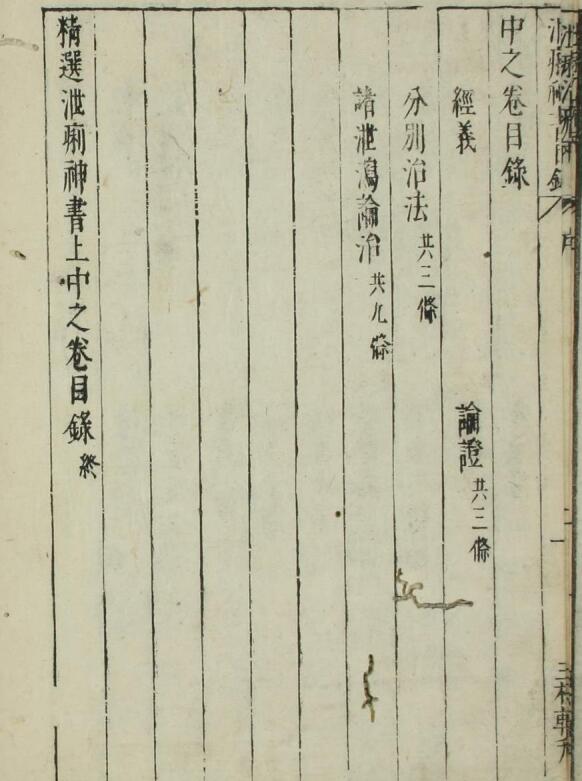 中之卷目錄
經義 論證 共三條
分別治法 共三條
諸泄瀉論治 共九條
精選泄痢神書上中之卷目錄 終